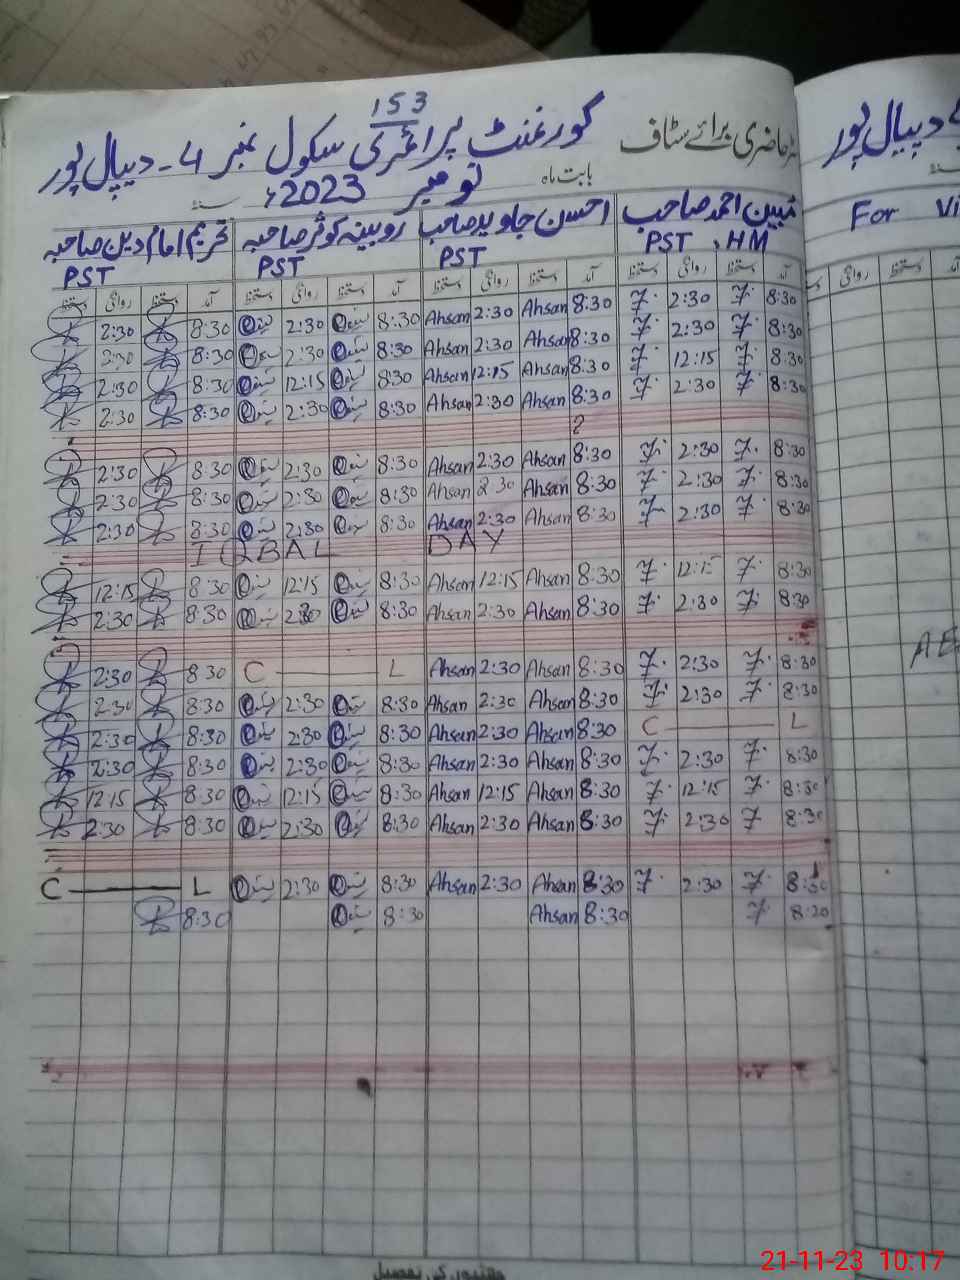 153
رجسٹر حاضری برائے سٹاف گورنمنٹ پرائمری سکول نمبر 4 - دیپالپور
بابت ماہ نومبر 2023ء سنہ
مبین احمد صاحب احسن جاوید صاحب روبینہ کوثر صاحبہ تحریم امام دین صاحبہ
PST, HM PST PST PST
آمد دستخط روانگی دستخط آمد دستخط روانگی دستخط آمد دستخط روانگی دستخط آمد دستخط روانگی دستخط
8:30 2:30 8:30 Ahsan 2:30 Ahsan 8:30 2:30 8:30 2:30
8:30 2:30 8:30 Ahsan 2:30 Ahsan 8:30 2:30 8:30 2:30
8:30 12:15 8:30 Ahsan 12:15 Ahsan 8:30 12:15 8:30 2:30
8:30 2:30 8:30 Ahsan 2:30 Ahsan 8:30 2:30 8:30 2:30
8:30 2:30 8:30 Ahsan 2:30 Ahsan 8:30 2:30 8:30 2:30
8:30 2:30 8:30 Ahsan 2 30 Ahsan 8:30 2:30 8:30 2:30
8:30 2:30 8:30 Ahsan 2:30 Ahsan 8:30 2:30 8:30 2:30
IQBAL DAY
8:30 12:15 8:30 Ahsan 12:15 Ahsan 8:30 12:15 8:30 12:15
8:30 2:30 8:30 Ahsan 2:30 Ahsan 8:30 8:30 2:30
8:30 2:30 8:30 Ahsan 2:30 Ahsan C — L 8:30 2:30
8:30 2:30 8:30 Ahsan 2:30 Ahsan 8:30 2:30 8:30 2:30
C — L 8:30 Ahsan 2:30 Ahsan 8:30 2:30 8:30 2:30
8:30 2:30 8:30 Ahsan 2:30 Ahsan 8:30 2:30 8:30 2:30
8:30 12:15 8:30 Ahsan 12:15 Ahsan 8:30 12:15 8:30 12:15
8:30 2:30 8:30 Ahsan 2:30 Ahsan 8:30 2:30 8:30 2:30
8:30 2:30 8:30 Ahsan 2:30 Ahsan 8:30 2:30 C — L
8:20 8:30 Ahsan 8:30 8:30
دیپالپور
For Vi
روانگی
AE
چھٹیوں کی تفصیل
21-11-23 10:17